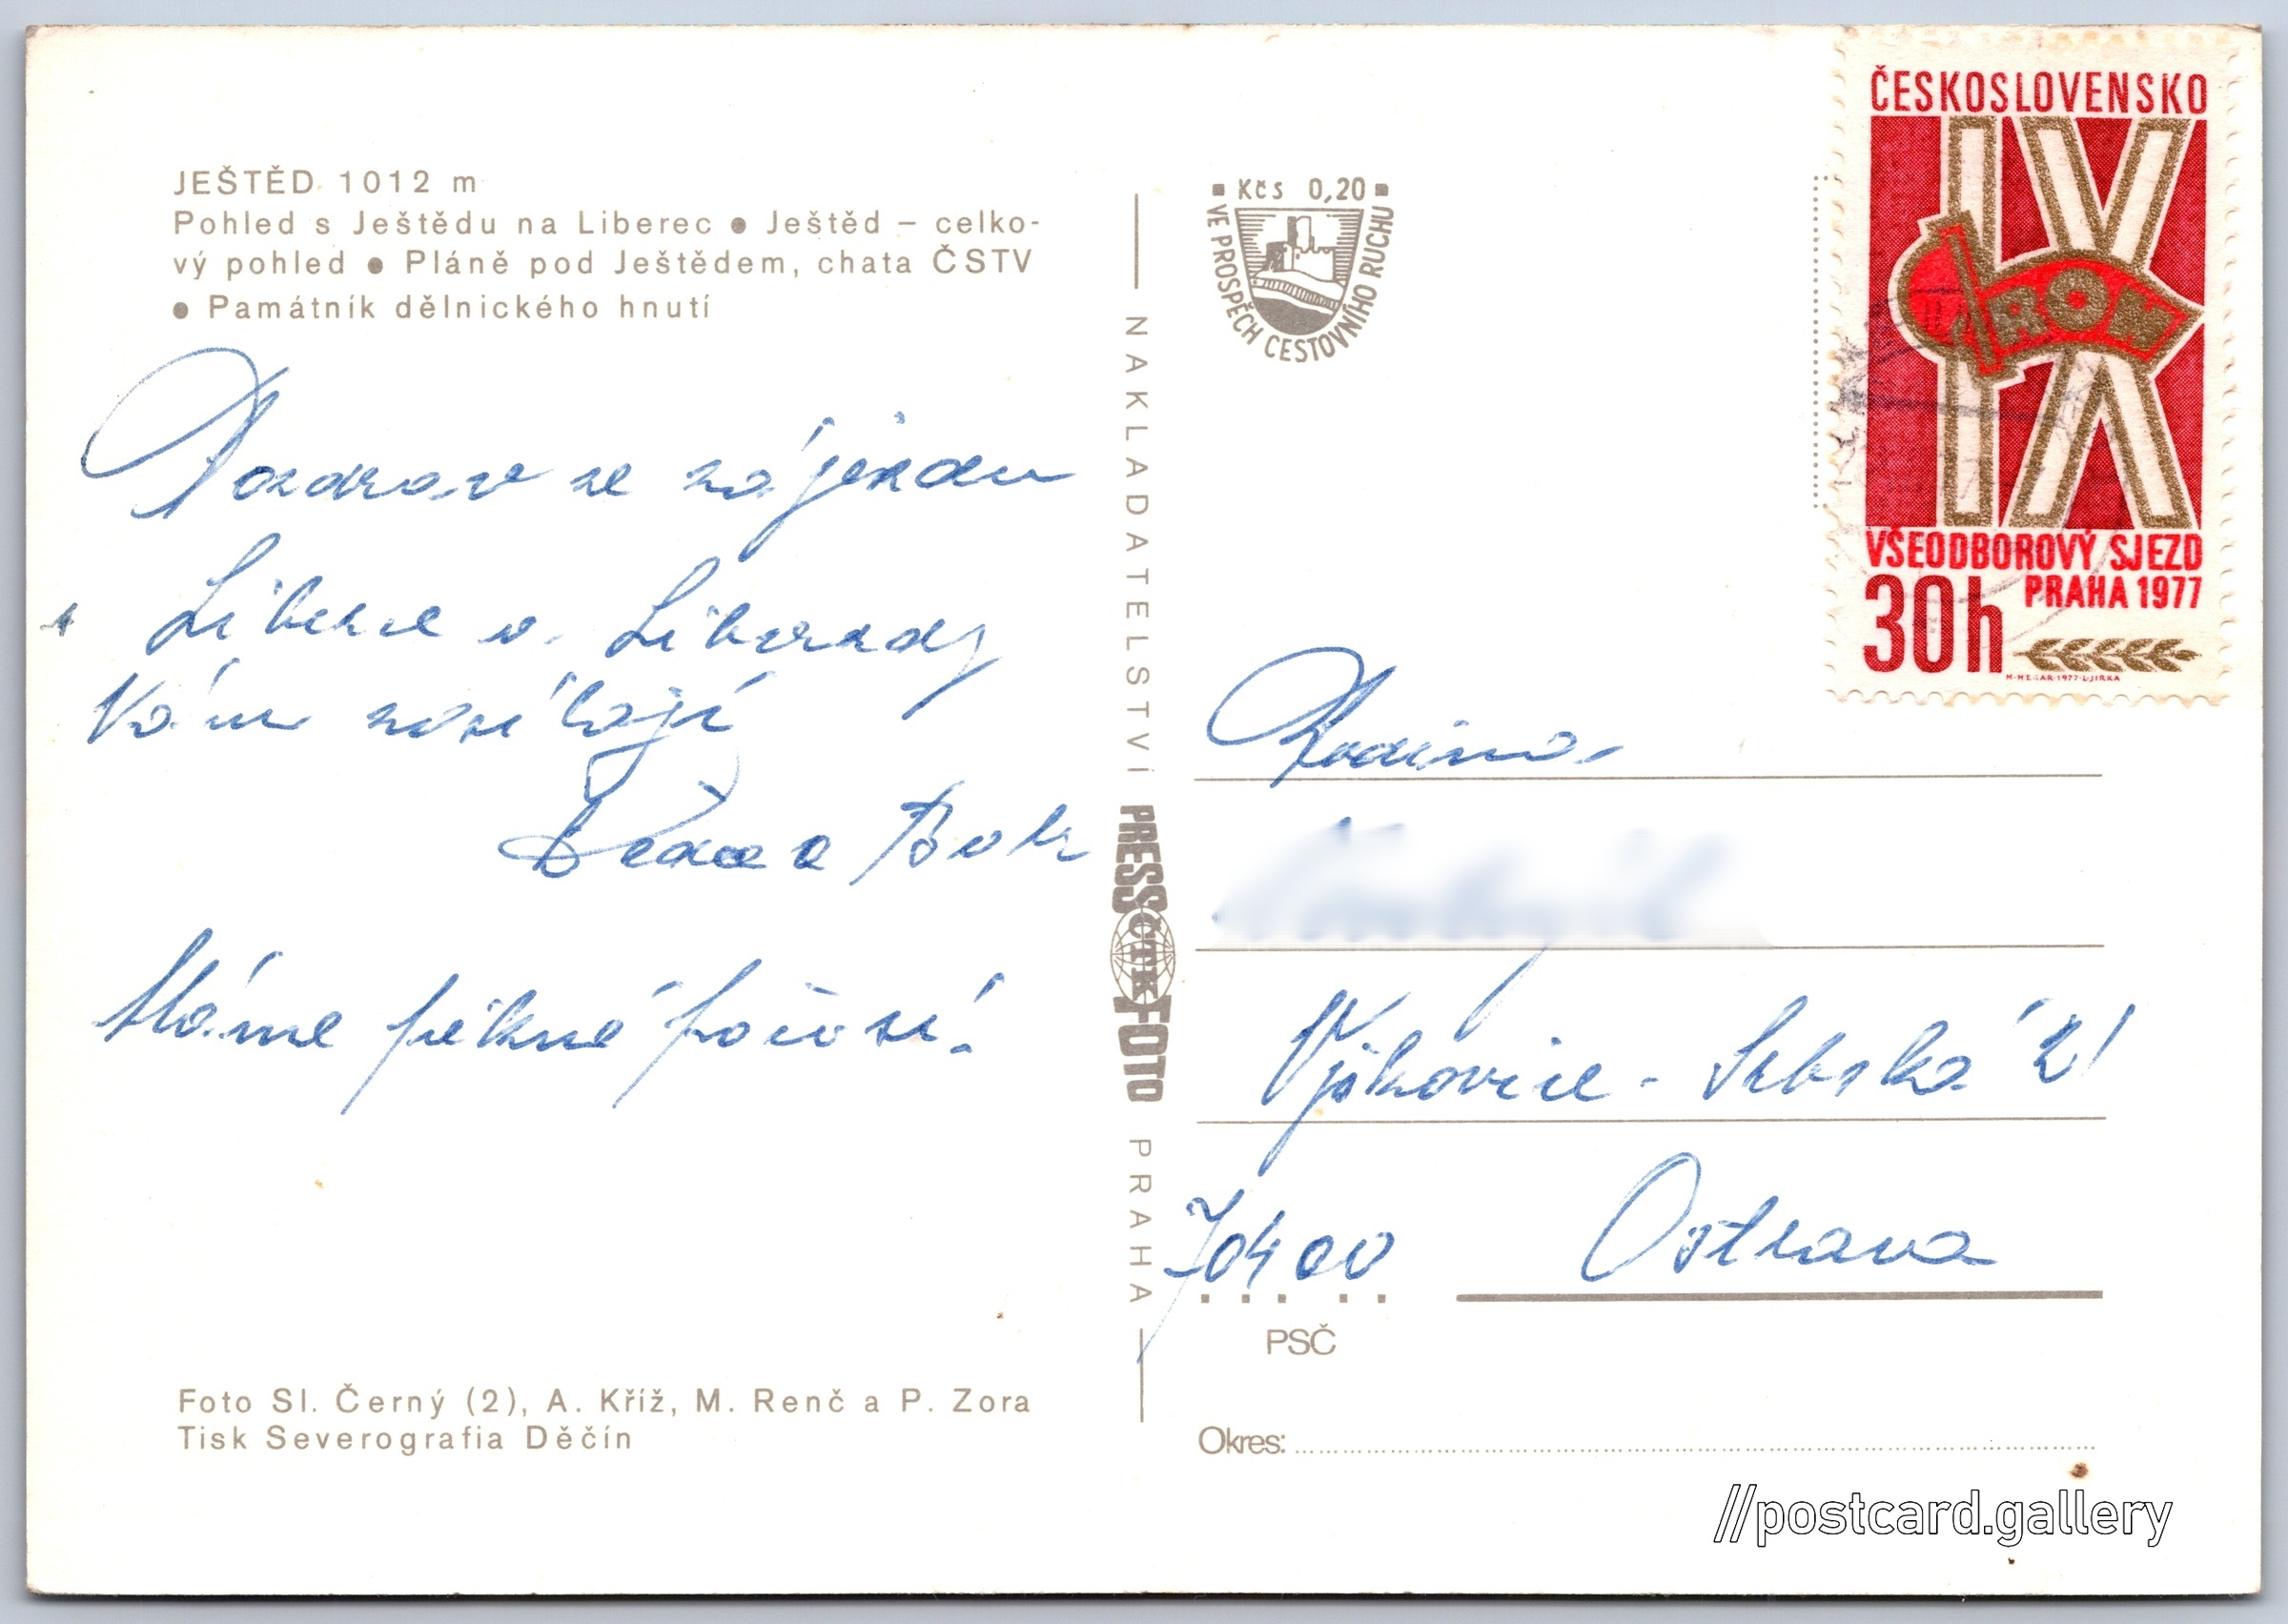 JEŠTĚD 1012 m
Pohled s Ještědu na Liberec ● Ještěd – celko-
vý pohled ● Pláně pod Ještědem, chata ČSTV
● Památník dělnického hnutí
Pozdrav ze zájezdu
Liberec
Vám zasílají
a
Máme pěkné počasí.
Foto Sl. Černý (2), A. Kříž, M. Renč a P. Zora
Tisk Severografia Děčín
NAKLADATELSTVÍ PRESSFOTO PRAHA
ČTK
Kčs 0,20
VE PROSPĚCH CESTOVNÍHO RUCHU
ČESKOSLOVENSKO
IX
ROH
VŠEODBOROVÝ SJEZD
PRAHA 1977
30h
M·HEGAR·1977·L·JIRKA
Rodina
Výškovice - Srbská 21
70400 Ostrava
PSČ
Okres:
//postcard.gallery